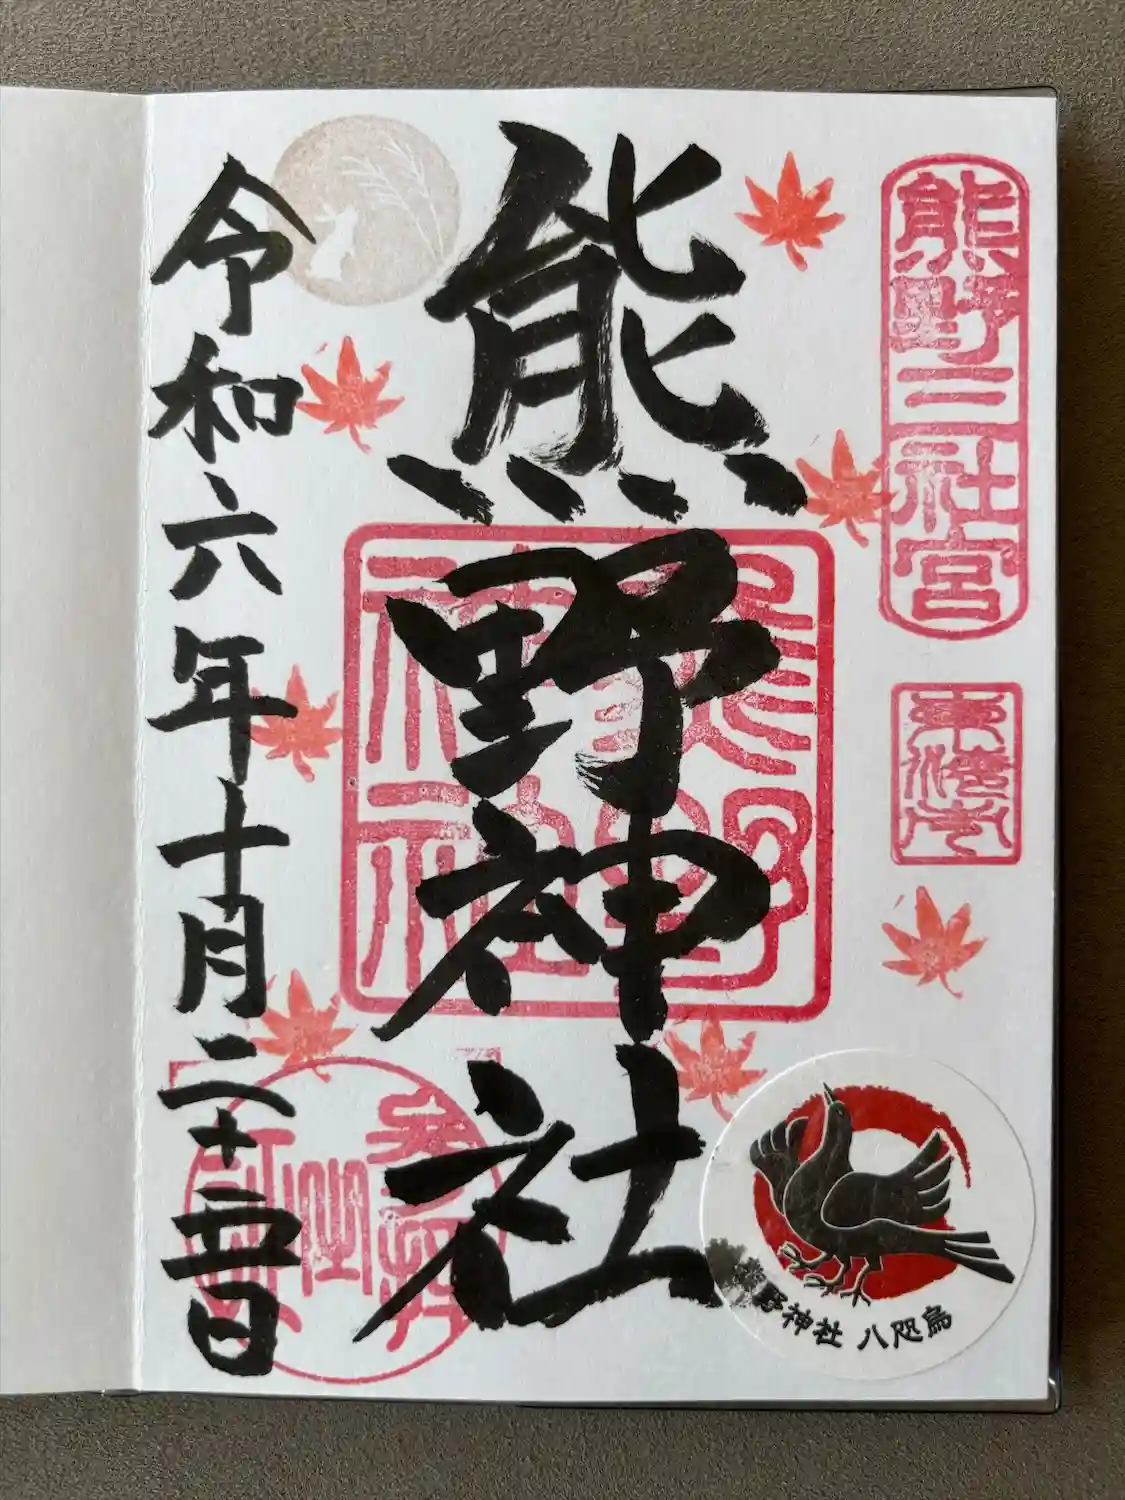 熊野三社宮
熊野神社
熊野神社
令和六年十月二十五日
熊野神社 八咫烏